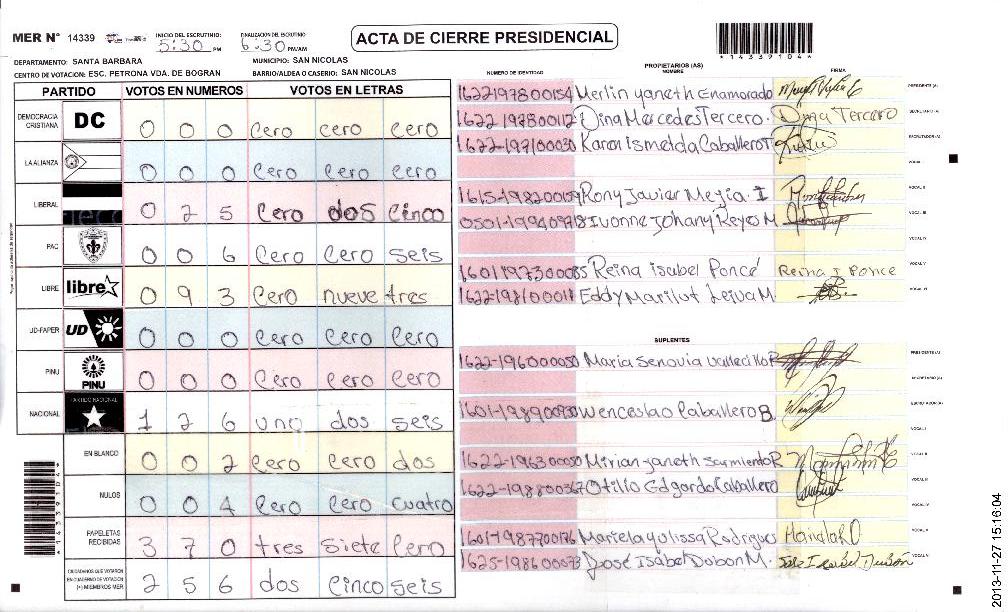 MER N° 14339 INICIO DEL ESCRUTINIO: 5:30 PM FINALIZACION DEL ESCRUTINIO 6:30 PM/AM
ACTA DE CIERRE PRESIDENCIAL
*14339104*
DEPARTAMENTO: SANTA BARBARA MUNICIPIO: SAN NICOLAS
CENTRO DE VOTACION: ESC. PETRONA VDA. DE BOGRAN BARRIO/ALDEA O CASERIO: SAN NICOLAS
PARTIDO VOTOS EN NUMEROS VOTOS EN LETRAS
DEMOCRACIA CRISTIANA DC 0 0 0 Cero cero cero
LA ALIANZA 0 0 0 Cero cero cero
LIBERAL 0 2 5 Cero dos cinco
PAC 0 0 6 Cero Cero seis
LIBRE libre 0 9 3 Cero nueve tres
UD-FAPER UD 0 0 0 Cero Cero Cero
PINU PINU 0 0 0 Cero Cero Cero
NACIONAL PARTIDO NACIONAL 1 2 6 uno dos seis
EN BLANCO 0 0 2 Cero Cero dos
NULOS 0 0 4 Cero Cero cuatro
PAPELETAS RECIBIDAS 3 7 0 tres siete Cero
CIUDADANOS QUE VOTARON EN CUADERNO DE VOTACION (+) MIEMBROS MER 2 5 6 dos Cinco seis
*14339104*
PROPIETARIOS (AS)
NUMERO DE IDENTIDAD NOMBRE FIRMA
1622197800154 Merlin yaneth Enamorado PRESIDENTE (A)
1622-197800112 Dina Mercedes Tercero. Dina Tercero SECRETARIO (A)
1622-197100030 Karen Ismelda Caballero T ESCRUTADOR (A)
VOCAL I
1615-198200159 Rony Javier Mejia. I VOCAL II
0501-199409718 Ivonne Johany Reyes M VOCAL III
VOCAL IV
1601197300085 Reina isabel Ponce Reina I Ponce VOCAL V
1622-198100011 Eddy Marilut Leiva M. VOCAL VI
SUPLENTES
1622-196000050 Maria Senovia Vallecillo R PRESIDENTE (A)
SECRETARIO (A)
Wenceslao Caballero B. ESCRUTADOR (A)
VOCAL I
1622-196300050 Mirian Janeth Sarmiento R VOCAL II
1622-198800367 Otilio Edgardo Caballero VOCAL III
VOCAL IV
1601-198700176 Mariela yulissa Rodrigues VOCAL V
1625-198600073 José Isabel Dubon M. José Isabel Dubón VOCAL VI
2013-11-27 15:16:04